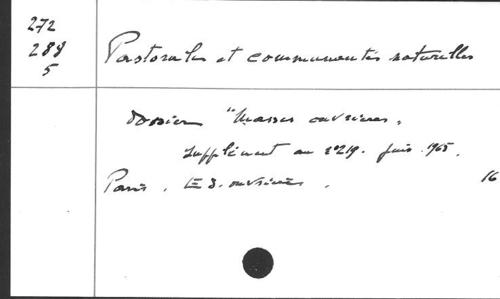 272
288
5
Pastorales et communautés naturelles
Dossier "Masses ouvrières.
Supplément au n°219. juin 1965.
Paris. Ed. ouvrières.
16